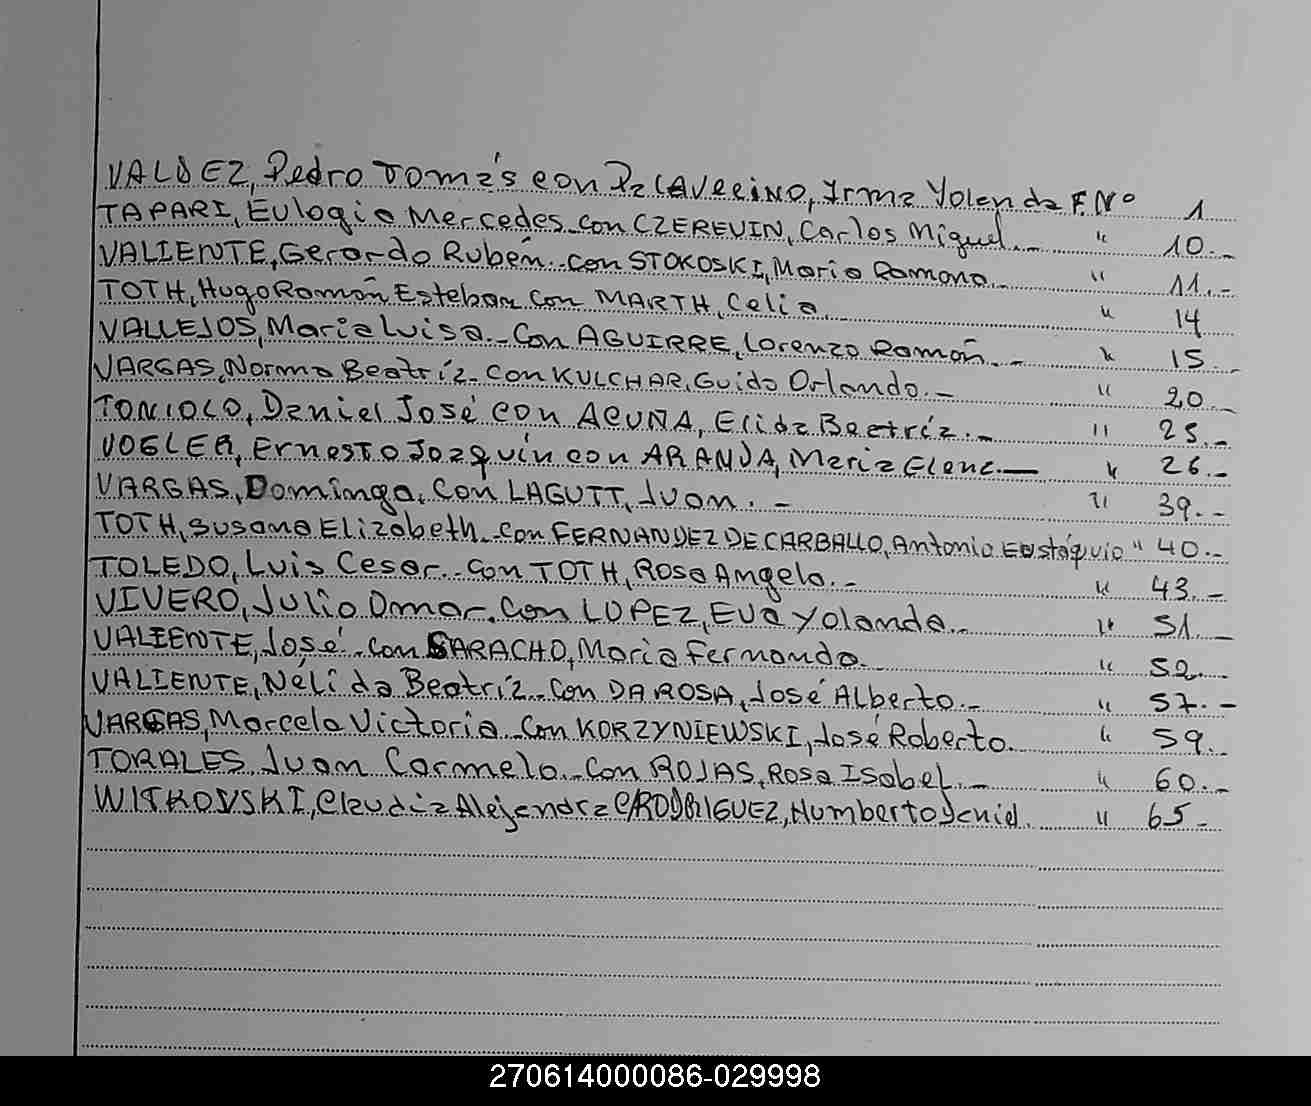 VALDEZ, Pedro Tomás con PALAVECINO, Irma Yolanda F. Nº 1
TAPARI, Eulogia Mercedes.-con CZEREVIN, Carlos Miguel.- " 10.-
VALIENTE, Gerardo Rubén.-con STOKOSKI, Maria Ramona.- " 11.-
TOTH, Hugo Ramón Esteban con MARTH, Celia. " 14
VALLEJOS, Maria Luisa.-Con AGUIRRE, Lorenzo Ramón.- " 15.-
VARGAS, Norma Beatríz.-con KULCHAR, Guido Orlando.- " 20.-
TONIOLO, Daniel José con ACUÑA, Elida Beatríz.- " 25.-
VOGLER, Ernesto Joaquín con ARANDA, Maria Elena.- " 26.-
VARGAS, Dominga. Con LAGUTT, Juan.- " 39.-
TOTH, Susana Elizabeth.-con FERNANDEZ DE CARBALLO, Antonio Eustáquio " 40.-
TOLEDO, Luis Cesar.-con TOTH, Rosa Angela.- " 43.-
VIVERO, Julio Omar.con LOPEZ, Eva Yolanda.- " 51.-
VALIENTE, José.-con SARACHO, Maria Fernanda. " 52.-
VALIENTE, Nélida Beatríz.-con DA ROSA, José Alberto.- " 57.-
VARGAS, Marcela Victoria.-con KORZYNIEWSKI, José Roberto. " 59.-
TORALES, Juan Carmelo.-con ROJAS, Rosa Isabel.- " 60.-
WITKOVSKI, Claudia Alejandra C/RODRIGUEZ, Humberto Daniel. " 65.-
270614000086-029998